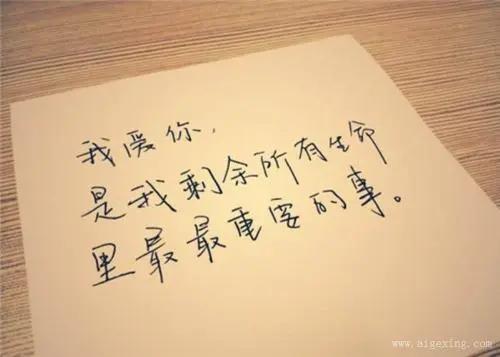 我爱你，
是我剩余所有生命
里最最重要的事。
www.aigexing.com